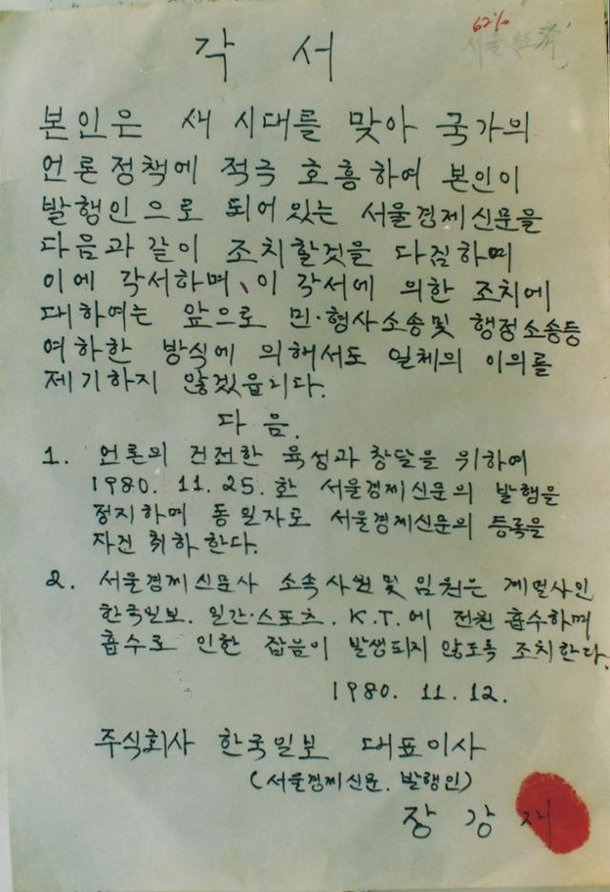 62%
서울경제
각 서
본인은 새 시대를 맞아 국가의
언론정책에 적극 호흥하여 본인이
발행인으로 되어있는 서울경제신문을
다음과 같이 조치할것을 다짐하며
이에 각서하며、이 각서에 의한 조치에
대하여는 앞으로 민·형사소송및 행정소송등
여하한 방식에 의해서도 일체의 이의를
제기하지 않겠읍니다.
다 음.
1. 언론의 건전한 육성과 창달을 위하여
1980. 11. 25. 한 서울경제신문의 발행을
정지하며 동일자로 서울경제신문의 등록을
자진 취하한다.
2. 서울경제신문사 소속사원및 임원은 계열사인
한국일보. 일간·스포츠. K.T.에 전원 흡수하며
흡수로 인한 잡음이 발생되지 않도록 조치한다.
1980. 11. 12.
주식회사 한국일보 대표이사
(서울경제신문. 발행인)
장 강 재